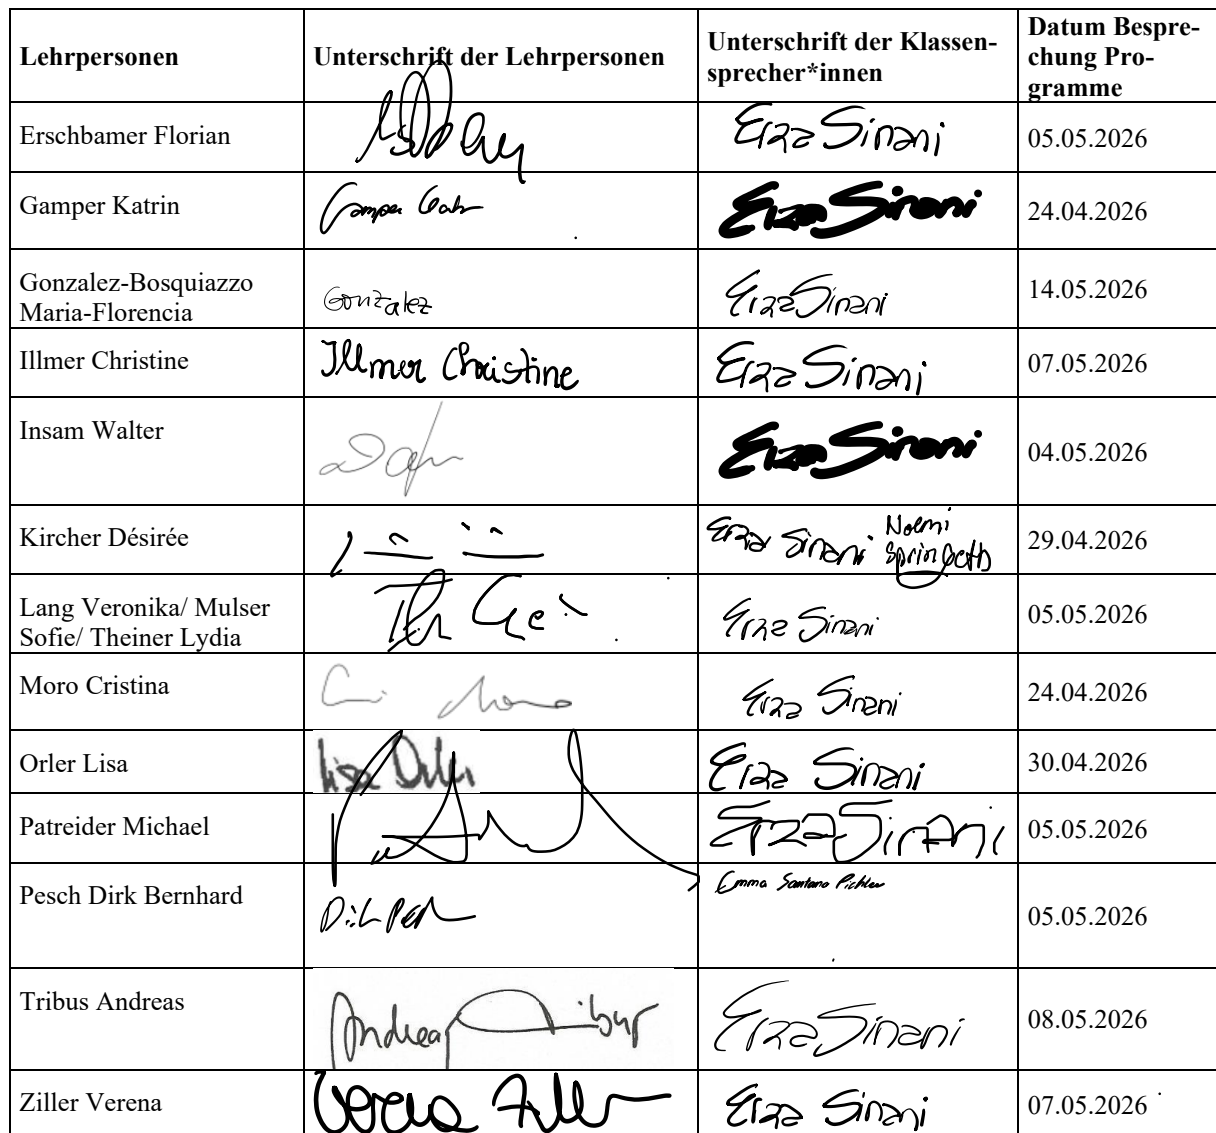 Lehrpersonen
Unterschrift der Lehrpersonen
Unterschrift der Klassen-
sprecher*innen
Datum Bespre-
chung Pro-
gramme
Erschbamer Florian
Erza Sinani
05.05.2026
Gamper Katrin
Gamper
Erza Sinani
24.04.2026
Gonzalez-Bosquiazzo
Maria-Florencia
Gonzalez
Erza Sinani
14.05.2026
Illmer Christine
Illmer Christine
Erza Sinani
07.05.2026
Insam Walter
Erza Sinani
04.05.2026
Kircher Désirée
Erza Sinani
Noemi
29.04.2026
Lang Veronika/ Mulser
Sofie/ Theiner Lydia
Erza Sinani
05.05.2026
Moro Cristina
Erza Sinani
24.04.2026
Orler Lisa
Lisa Orler
Erza Sinani
30.04.2026
Patreider Michael
Erza Sinani
05.05.2026
Pesch Dirk Bernhard
Emma Santano Pichler
05.05.2026
Tribus Andreas
Andreas Tribus
Erza Sinani
08.05.2026
Ziller Verena
Verena Ziller
Erza Sinani
07.05.2026